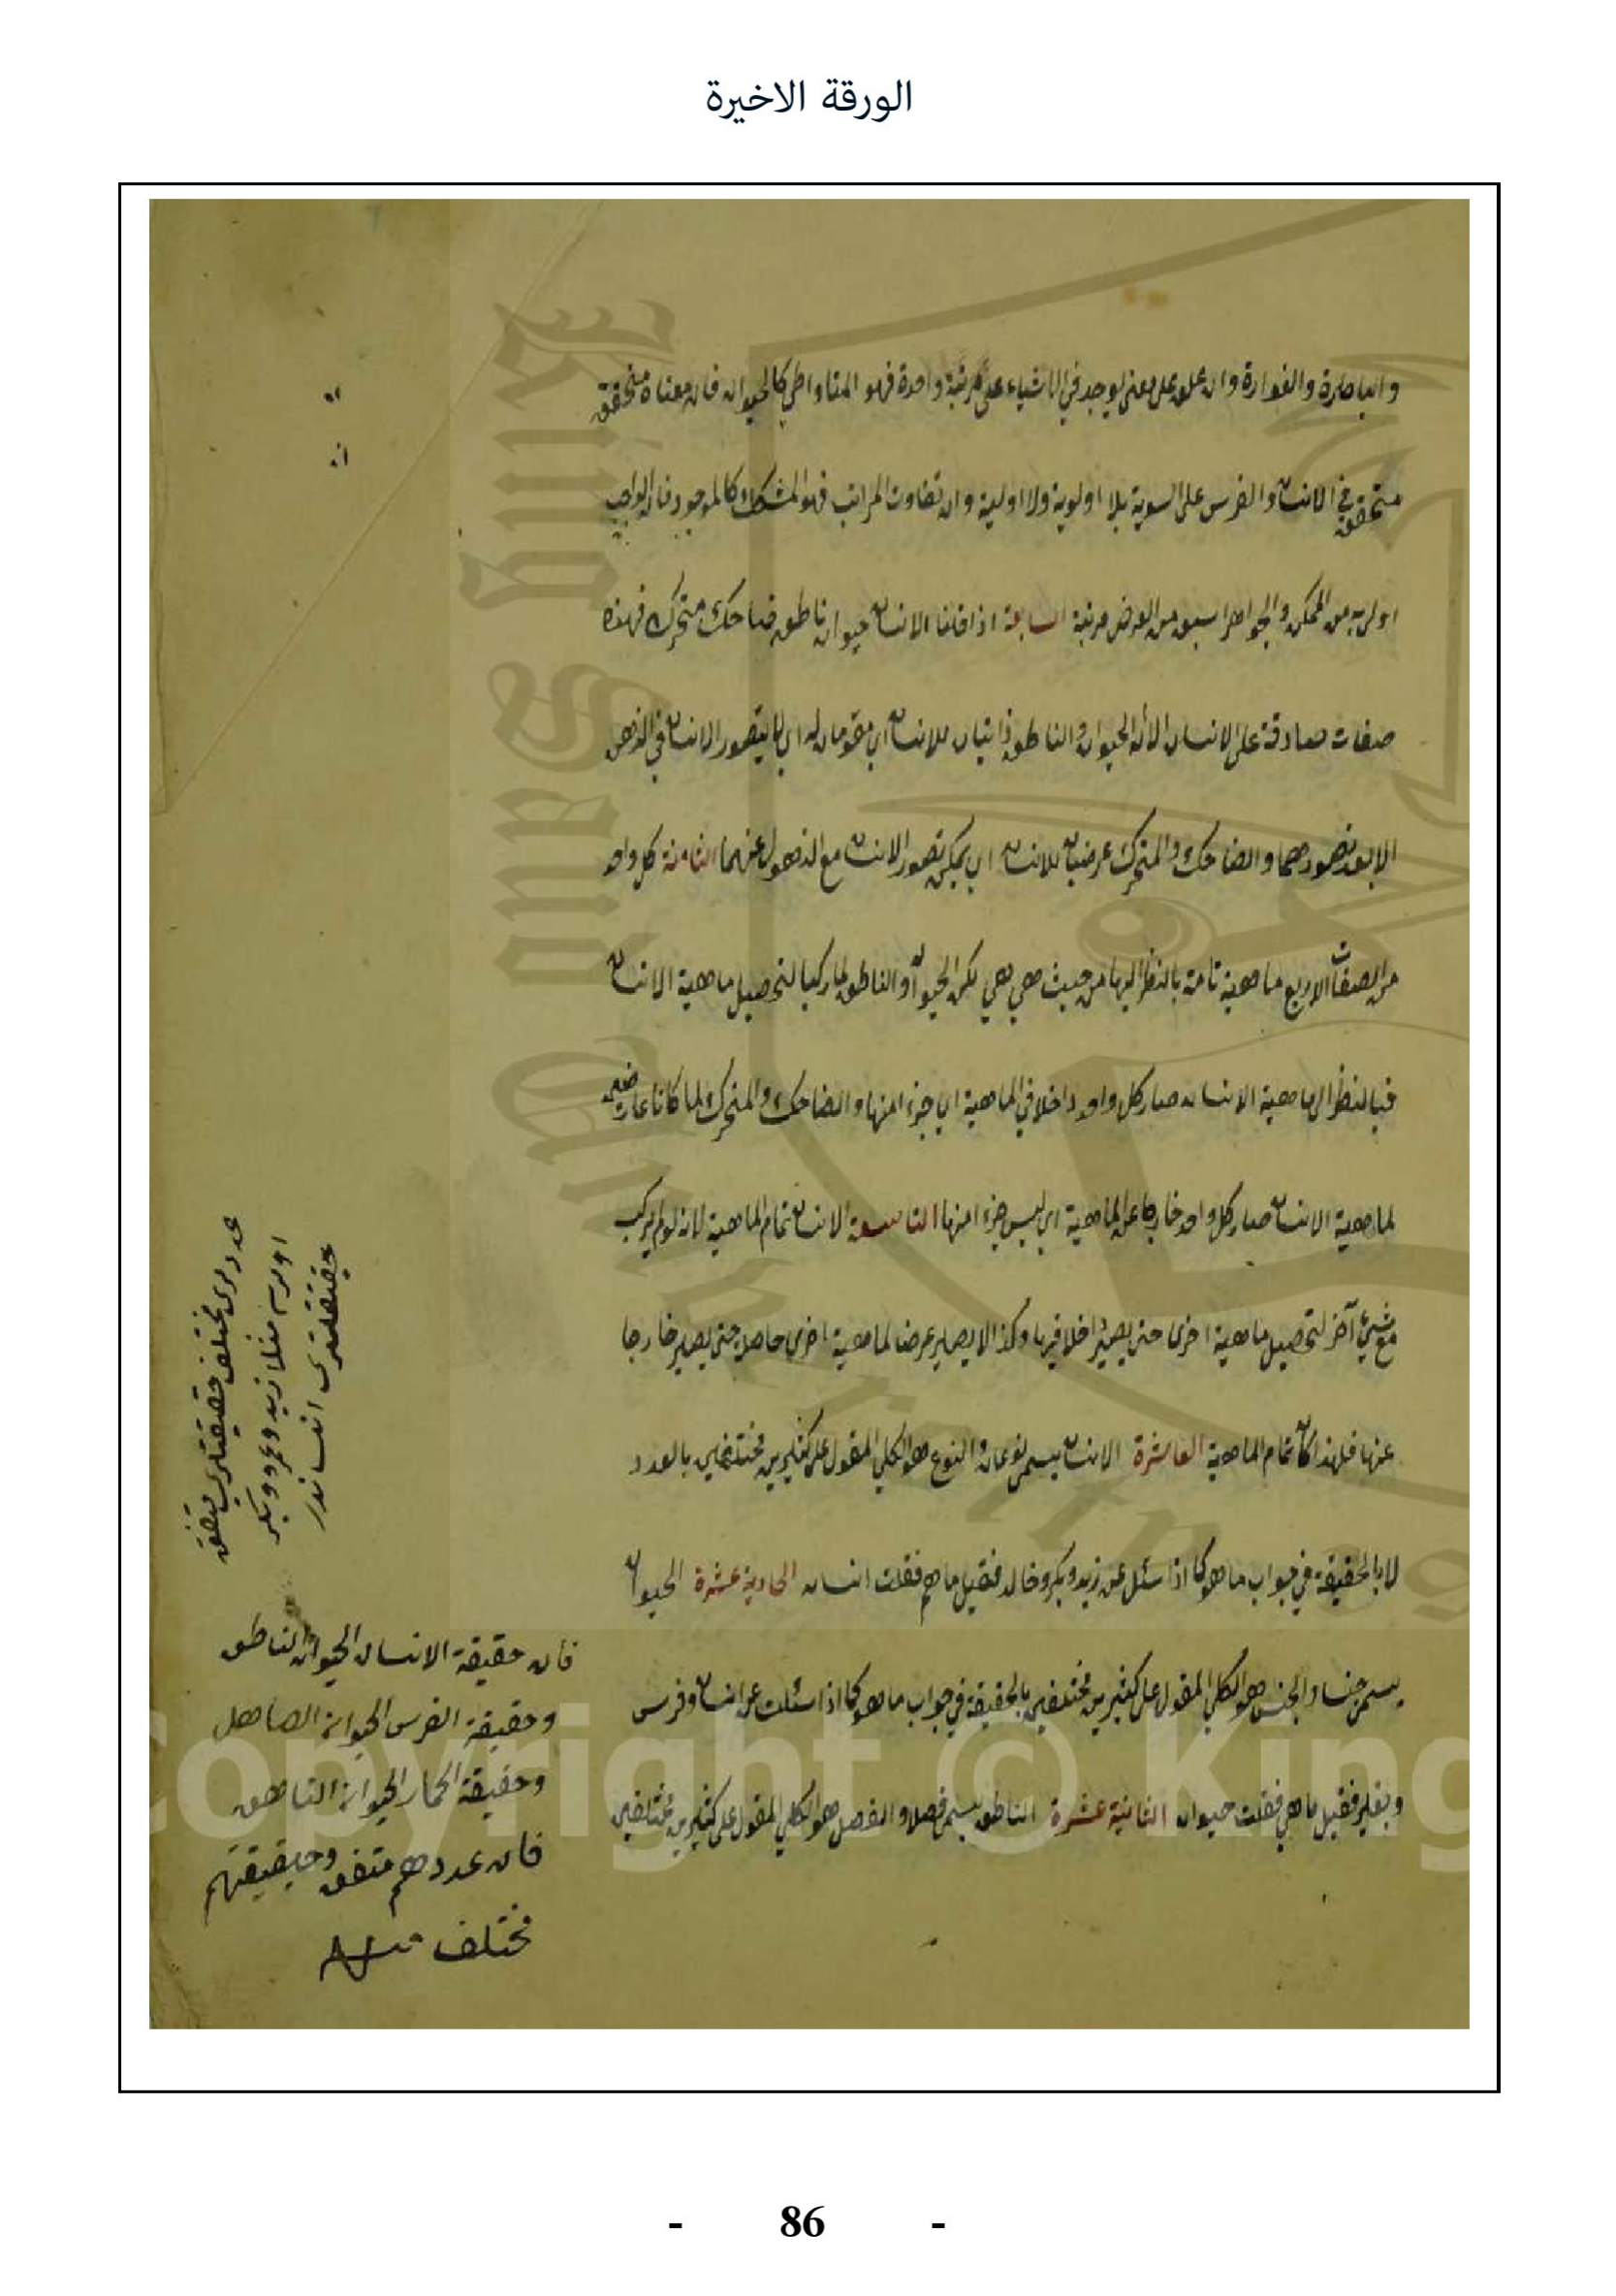 الورقة الاخيرة
والباصرة والفوارة وان علق على معنى يوجد في الاشياء على مرتبة واحدة فهو المتواطي كالحيوان فان معناه متحقق
متحقق في الانسان والفرس على السوية بلا اولوية ولا اولية وان تفاوت المراتب فهو المشكك كالموجود فان الواجب
اولى به من الممكن والجواهر اسبق من العرض مرتبة السابعة اذا قلنا الانسان حيوان ناطق ضاحك متحرك فهذه
صفات صادقة على الانسان الا ان الحيوان والناطق ذاتيان للانسان اي مقومان له اي لا يتصور الانسان في الذهن
الا بعد تصورهما والضاحك والمتحرك عرضيان للانسان اي يمكن تصور الانسان مع الذهول عنهما الثامنة كل واحد
من الصفات الاربع ماهية تامة بالنظر اليها من حيث هي هي لكن الحيوان والناطق لما ركبا لتحصيل ماهية الانسان
فبالنظر الى ماهية الانسان صار كل واحد داخلا في الماهية اي جزءا منها والضاحك والمتحرك لما كانا عارضين
لماهية الانسان صار كل واحد خارجا عن الماهية اي ليس جزءا منها التاسعة الانسان تمام الماهية لانه لو لم يركب
مع شيء آخر لتحصيل ماهية اخرى حتى يصير داخلا فيها وكذا لا يصير عرضا لماهية اخرى حاصلة حتى يصير خارجا
عنها فلهذا كان تمام الماهية العاشرة الانسان يسمى نوعا والنوع هو الكلي المقول على كثيرين مختلفين بالعدد
لا بالحقيقة في جواب ما هو كما اذا سئل عن زيد وبكر وخالد فقيل ما هم فقلت انسان الحادية عشرة الحيوان
يسمى جنسا والجنس هو الكلي المقول على كثيرين مختلفين بالحقيقة في جواب ما هو كما اذا سئلت عن انسان وفرس
وبغل فقيل ما هي فقلت حيوان الثانية عشرة الناطق يسمى فصلا والفصل هو الكلي المقول على كثيرين مختلفين
عددلرى مختلف حقيقتلرى متفق
اولان مثلا زيد وعمرو وبكر
حقيقتلرى انساندر
فان حقيقة الانسان الحيوان الناطق
وحقيقة الفرس الحيوان الصاهل
وحقيقة الحمار الحيوان الناهق
فان عددهم متفق وحقيقتهم
مختلف
Copyright © King
King Saud University
- 86 -